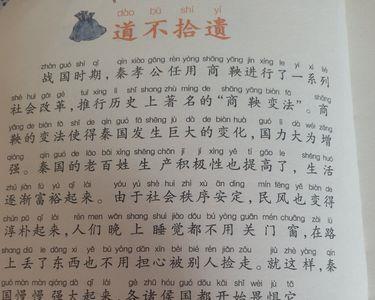 dào bù shí yí
道不拾遗
zhàn guó shí qī qín xiào gōng rèn yòng shāng yāng jìn xíng le yí xì liè
战国时期，秦孝公任用商鞅进行了一系列
shè huì gǎi gé tuī xíng lì shǐ shàng zhù míng de shāng yāng biàn fǎ shāng
社会改革，推行历史上著名的“商鞅变法”。商
yāng de biàn fǎ shǐ dé qín guó fā shēng jù dà de biàn huà guó lì dà wéi zēng
鞅的变法使得秦国发生巨大的变化，国力大为增
qiáng qín guó de lǎo bǎi xìng shēng chǎn jī jí xìng yě tí gāo le shēng huó
强。秦国的老百姓生产积极性也提高了，生活
zhú jiàn fù yù qǐ lái yóu yú shè huì zhì xù ān dìng mín fēng yě biàn de
逐渐富裕起来。由于社会秩序安定，民风也变得
chún pǔ qǐ lái rén men wǎn shang shuì jiào dōu bú yòng guān mén chuāng zài lù
淳朴起来，人们晚上睡觉都不用关门窗，在路
shang diū le dōng xi yě bú yòng dān xīn bèi bié rén jiǎn zǒu jiù zhè yàng qín
上丢了东西也不用担心被别人捡走。就这样，秦
guó màn màn qiáng dà qǐ lái gè zhū hóu guó dōu kāi shǐ wèi jù tā
国慢慢强大起来，各诸侯国都开始畏惧它